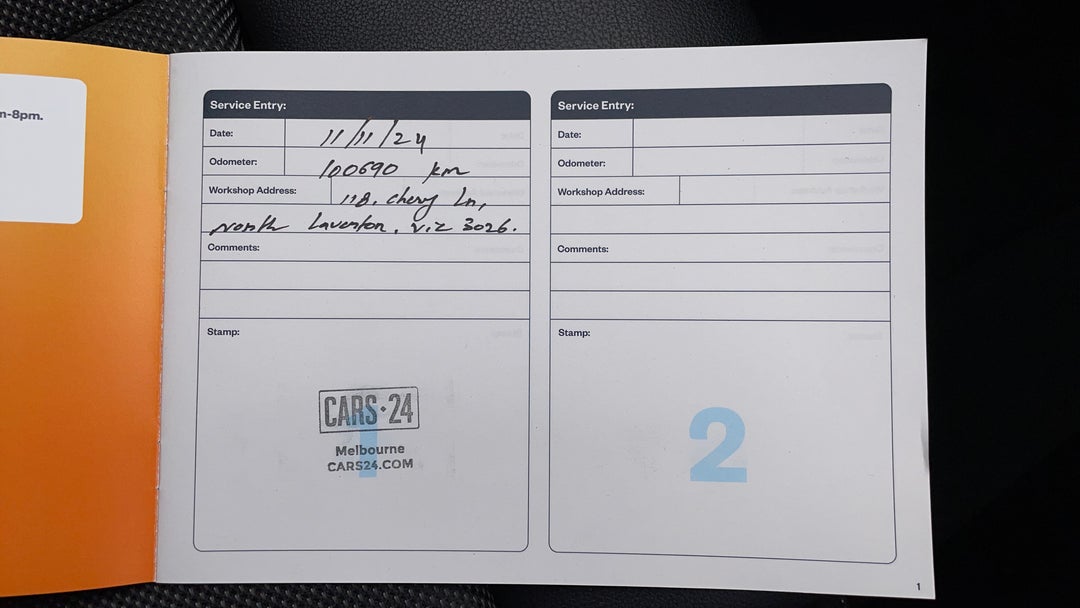 n-8pm.
Service Entry:
Date: 11/11/24
Odometer: 100690 km
Workshop Address: 118, cherry Ln,
North Laverton, Vic 3026.
Comments:
Stamp:
CARS·24
1
Melbourne
CARS24.COM
Service Entry:
Date:
Odometer:
Workshop Address:
Comments:
Stamp:
2
1